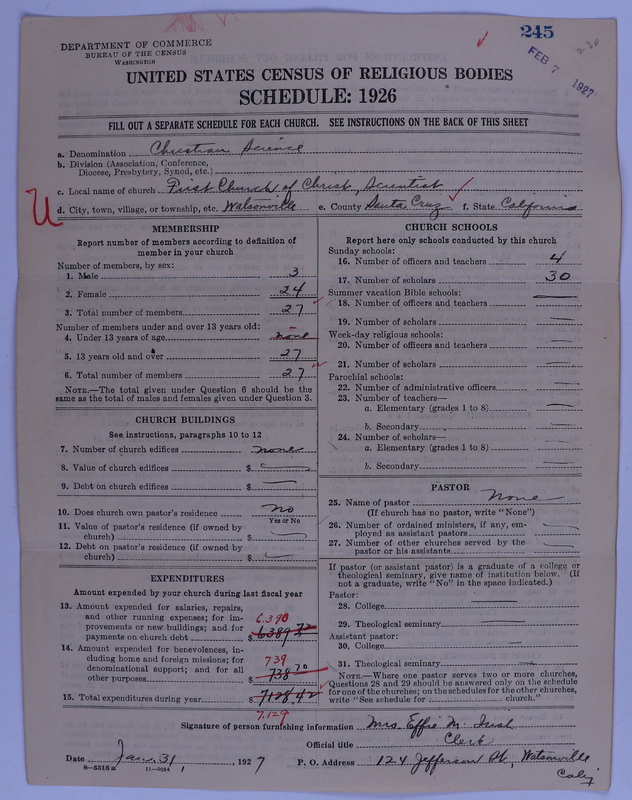 245
FEB 7 1927
230
DEPARTMENT OF COMMERCE
BUREAU OF THE CENSUS
WASHINGTON
UNITED STATES CENSUS OF RELIGIOUS BODIES
SCHEDULE: 1926
FILL OUT A SEPARATE SCHEDULE FOR EACH CHURCH. SEE INSTRUCTIONS ON THE BACK OF THIS SHEET
a. Denomination Christian Science
b. Division (Association, Conference,
Diocese, Presbytery, Synod, etc.)
c. Local name of church First Church of Christ, Scientist
d. City, town, village, or township, etc. Watsonville e. County Santa Cruz f. State California
U
MEMBERSHIP
Report number of members according to definition of
member in your church
Number of members, by sex:
1. Male 3
2. Female 24
3. Total number of members 27
Number of members under and over 13 years old:
4. Under 13 years of age none
5. 13 years old and over 27
6. Total number of members 27
NOTE.—The total given under Question 6 should be
same as the total of males and females given under Question 3.
CHURCH BUILDINGS
See instructions, paragraphs 10 to 12
7. Number of church edifices none
8. Value of church edifices $
9. Debt on church edifices $
10. Does church own pastor's residence no
Yes or No
11. Value of pastor's residence (if owned by
church) $
12. Debt on pastor's residence (if owned by
church) $
EXPENDITURES
Amount expended by your church during last fiscal year
13. Amount expended for salaries, repairs,
and other running expenses; for im-
provements or new buildings; and for
payments on church debt $ 6389.72
6.390
14. Amount expended for benevolences, in-
cluding home and foreign missions; for
denominational support; and for all
other purposes $ 738.70
739
15. Total expenditures during year $ 7128.42
7.129
CHURCH SCHOOLS
Report here only schools conducted by this church
Sunday schools:
16. Number of officers and teachers 4
17. Number of scholars 30
Summer vacation Bible schools:
18. Number of officers and teachers
19. Number of scholars
Week-day religious schools:
20. Number of officers and teachers
21. Number of scholars
Parochial schools:
22. Number of administrative officers
23. Number of teachers—
a. Elementary (grades 1 to 8)
b. Secondary
24. Number of scholars—
a. Elementary (grades 1 to 8)
b. Secondary
PASTOR
25. Name of pastor None
(If church has no pastor, write "None")
26. Number of ordained ministers, if any, em-
ployed as assistant pastors
27. Number of other churches served by the
pastor or his assistants
If pastor (or assistant pastor) is a graduate of a college or
theological seminary, give name of institution below. (If
not a graduate, write "No" in the space indicated.)
Pastor:
28. College
29. Theological seminary
Assistant pastor:
30. College
31. Theological seminary
NOTE.—Where one pastor serves two or more churches,
Questions 28 and 29 should be answered only on the schedule
for one of the churches; on the schedules for the other churches,
write "See schedule for church."
Signature of person furnishing information Mrs. Effie M.
Official title Clerk
Date Jan. 31, 1927 P. O. Address 124 Jefferson St., Watsonville
Calif
8—5518a 11—9054